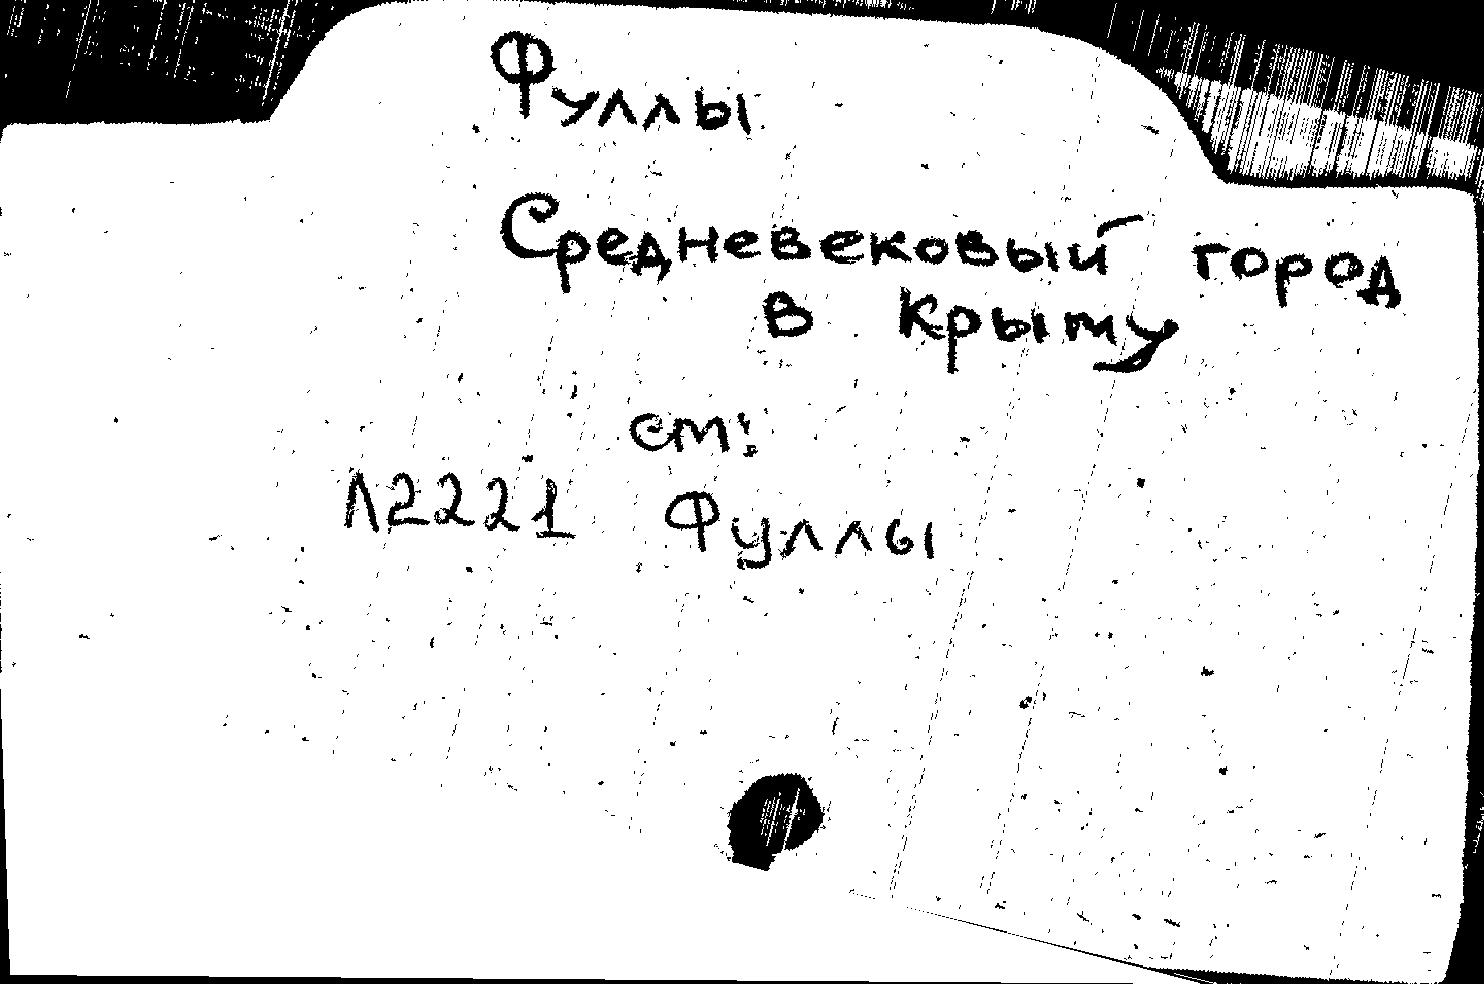 Фуллы
Средневековый город
в Крыму
см:
Л2221 Фуллы